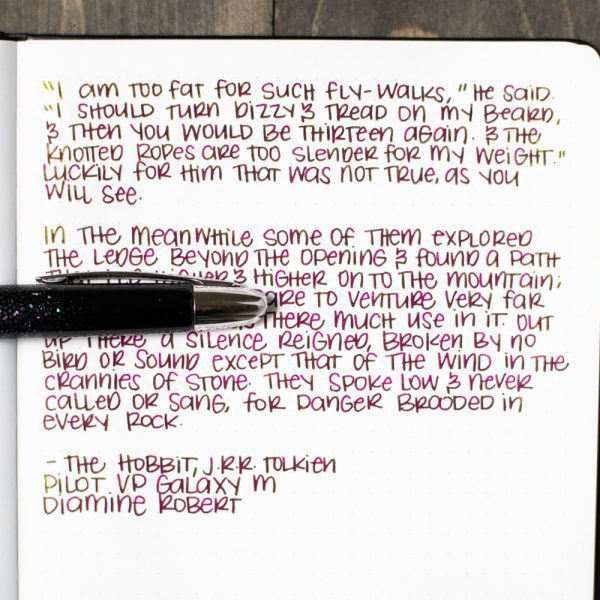 "I am too fat for such fly-walks," he said.
"I should turn dizzy & tread on my beard,
& then you would be thirteen again. & the
knotted ropes are too slender for my weight."
Luckily for him that was not true, as you
will see.
In the meanwhile some of them explored
the ledge beyond the opening & found a path
& higher on to the mountain;
to venture very far
there much use in it. Out
up there a silence reigned, broken by no
bird or sound except that of the wind in the
crannies of stone. They spoke low & never
called or sang, for danger brooded in
every rock.
- The Hobbit, J.R.R. Tolkien
Pilot VP Galaxy M
Diamine Robert